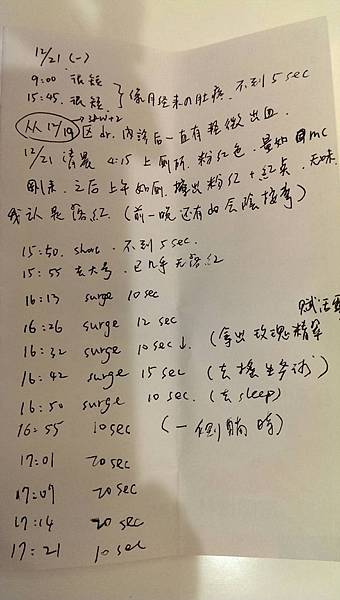 12/21 (一)
9:00 很短
15:45. 很短 } 像月经来の肚痛. 不到5sec
从12/19 show+2 区dr. 内诊后一直有轻微出血.
12/21 清晨 4:15 上厕所. 粉红色. 量如同mc
刚来. 之后上午如厕. 擦出粉红+红点. 无味.
我认是落红. (前一晚还有的会陰按摩)
15:50. short. 不到5sec.
15:55 去大号. 已几乎无落红
16:13 surge 10sec
16:26 surge 12 sec
16:32 surge 10sec↓. (拿出玫瑰精萃
16:42 surge 15sec (去搖生务球)
16:50 surge 10sec. (去sleep)
16:55 10sec (一側躺時)
17:01 20sec
17:07 20sec
17:14 20sec
17:21 10sec